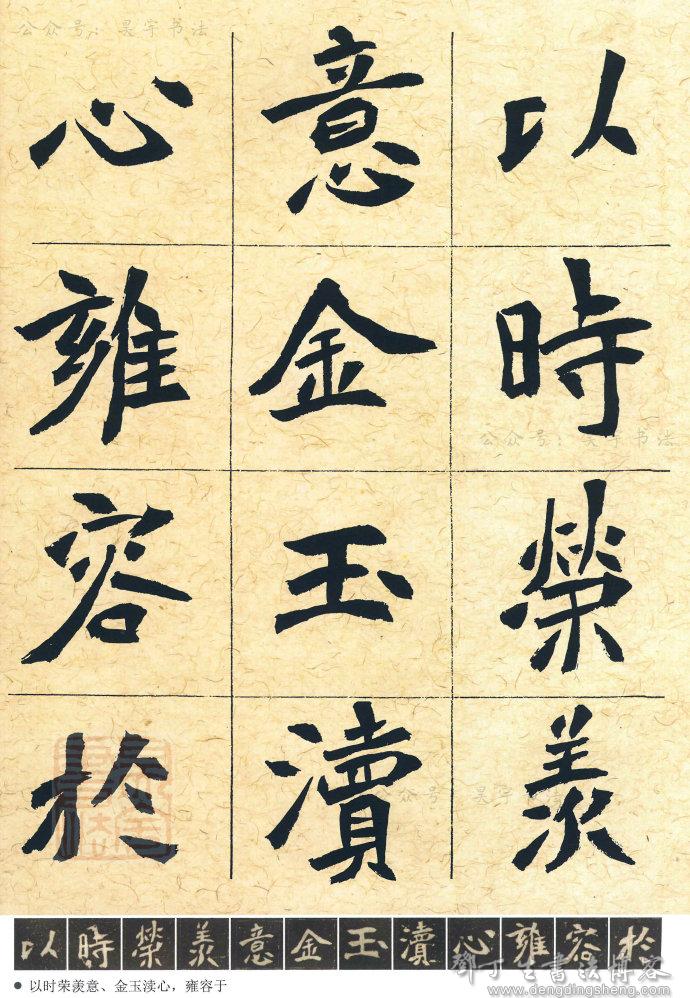 公众号：昊宇书法
以時榮羨
意金玉瀆
心雍容於
公众号：昊宇书法
公众号 昊宇书法
以時榮羨意金玉瀆心雍容於
● 以时荣羡意、金玉渎心，雍容于
鄧丁生書法博客
www.dengdingsheng.com